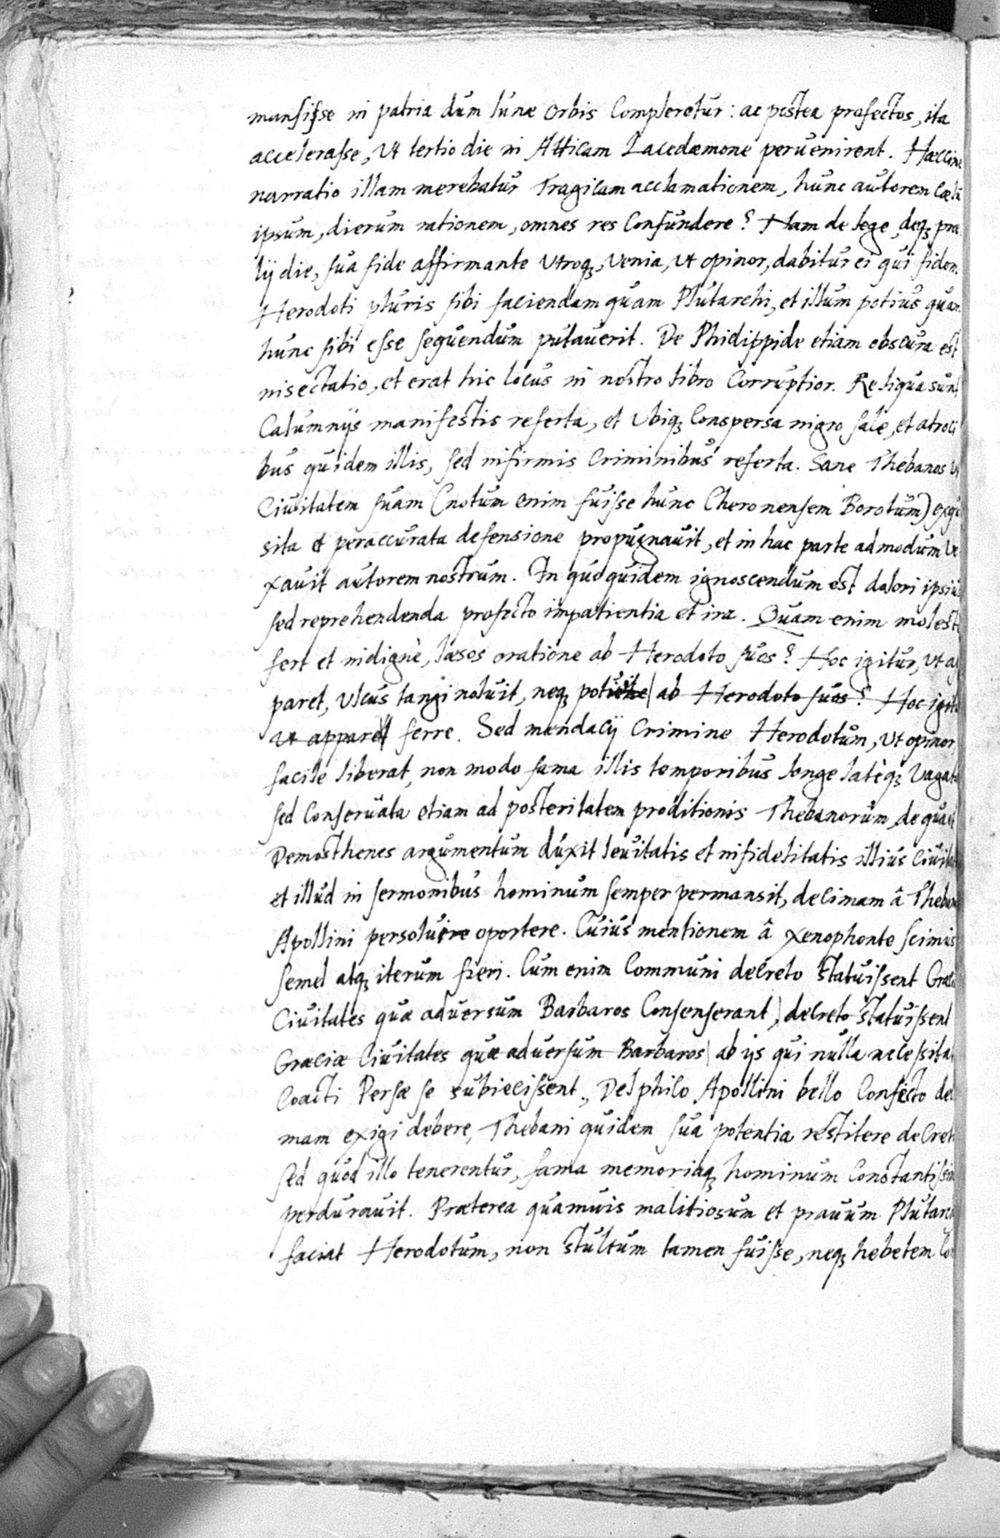 mansisse in patria dum lunæ orbis Compleretur: ac postea profectos, ita
accelerasse, Ut tertio die in Atticam Lacedæmone peruenirent. Hæccine
narratio illam merebatur Tragicam acclamationem, hunc autorem Cælū
ipsum, dierum rationem, omnes res Confundere? Nam de lege, deq3 præ
lij die, sua fide affirmante Utroq3, Venia, Ut opinor, dabitur ei qui fidem
Herodoti pluris sibi faciendam quam Plutarchi, et illum potius quam
hunc sibi esse sequendum putauerit. De Phidippide etiam obscura est
insectatio, et erat hic locus in nostro libro Corruptior. Reliqua sunt
Calumnijs manifestis referta, et Ubiq3 Conspersa nigro sale, et atroci
bus quidem illis, sed infirmis Criminibus referta. Sane Thebanos
Ciuitatem suam (notum enim fuisse hunc Cheronensem Beotum) exqui
sita et peraccurata defensione propugnauit, et in hac parte admodum Ve
xauit autorem nostrum. In quo quidem ignoscendum est dolori ipsius
sed reprehendenda profecto impatientia et ira. Quam enim moleste
fert et indignè, læsos oratione ab Herodoto suos? Hoc igitur, Ut ap
paret, Ulcus tangi noluit, neq3 potuit ab Herodoto suos? Hoc igitur
Ut apparet ferre. Sed mendacij Crimine Herodotum, Ut opinor
facile liberat, non modo fama illis temporibus longe latèq3 Vagata
sed Conseruata etiam ad posteritatem proditionis Thebanorum, de qua et
Demosthenes argumentum dúxit leuitatis et infidelitatis illius Ciuita
et illud in sermonibus hominum semper permansit, decimam â Theban
Apollini persoluere oportere. Cuius mentionem â Xenophonte scimus
semel atq3 iterum fieri. Cum enim Communi decreto statuissent Græciæ
Ciuitates quæ aduersum Barbaros Consenserant, decreto statuissent
Græciæ Ciuitates quæ aduersum Barbaros ab ijs qui nulla necessitat
Coacti Persæ se subiecissent, Delphico Apollini bello Confecto deci
mam exigi debere, Thebani quidem sua potentia restitere decreto
sed quod illo tenerentur, fama memoriaq3 hominum Constantissim
perdurauit. Præterea quamuis malitiosum et prauum Plutarch
faciat Herodotum, non stultum tamen fuisse, neq3 hebetem